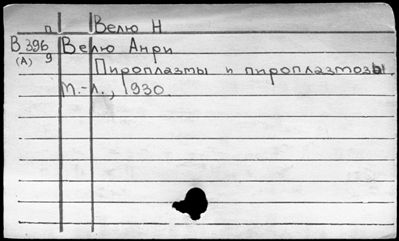 п Велю Н
В 396 Велю Анри
(А) 9 Пироплазмы и пироплазмозы.
М.-Л., 1930.